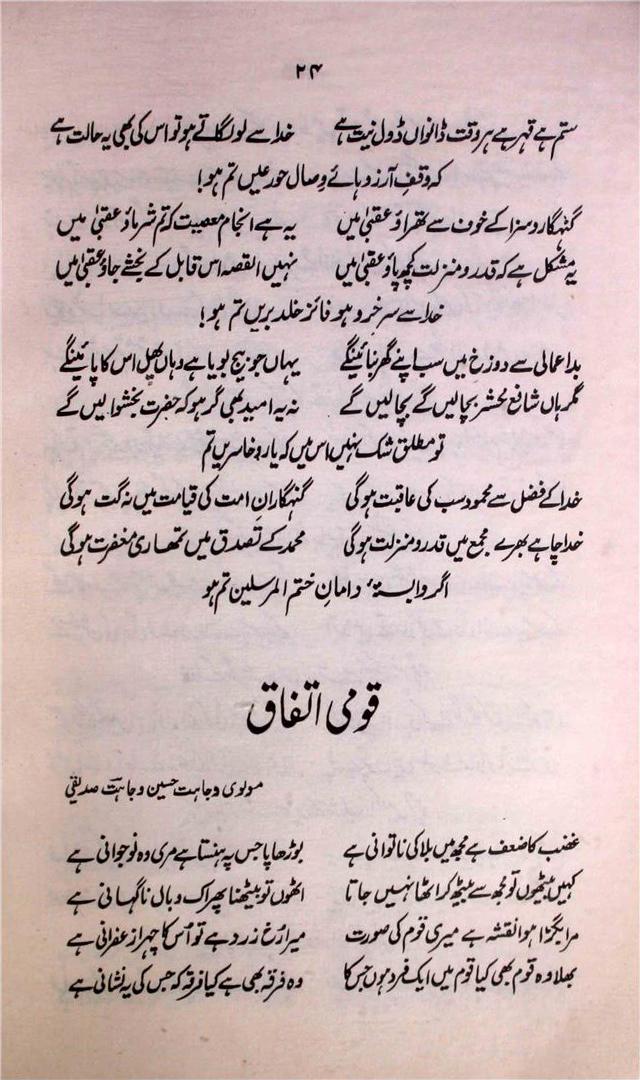 ۲۴
ستم ہے قہر ہے ہر وقت ڈانواں ڈول نیت ہے خدا سے لو لگاتے ہو تو اس کی بھی یہ حالت ہے
کہ وقفِ آرزو ہائے وصال حور عیں تم ہو!
گنہگارو سزا کے خوف سے تھراؤ عقبیٰ میں یہ ہے انجام معصیت کہ تم شرماؤ عقبیٰ میں
یہ مشکل ہے کہ قدر و منزلت کچھ پاؤ عقبیٰ میں نہیں القصہ اس قابل کے بخشے جاؤ عقبیٰ میں
خدا سے سرخرو ہو فائز خلد بریں تم ہو!
بداعمالی سے دوزخ میں سب اپنے گھر بنائینگے یہاں جو بیج بویا ہے وہاں پھل اس کا پائینگے
مگر ہاں شافع محشر بچالیں گے بچالیں گے نہ یہ امید بھی گر ہو کہ حضرت بخشوالیں گے
تو مطلق شک نہیں اس میں کہ یارو خاسریں تم
خدا کے فضل سے محمود سب کی عاقبت ہوگی گنہگارانِ امت کی قیامت میں نہ گت ہوگی
خدا چاہے بھرے مجمع میں قدر و منزلت ہوگی محمد کے تصدق میں تمھاری مغفرت ہوگی
اگر وابستۂ دامانِ ختم المرسلین تم ہو
قومی اتفاق
مولوی وجاہت حسین وجاہت صدیقی
غضب کا ضعف ہے مجھ میں بلا کی ناتوانی ہے بوڑھاپا جس پہ ہنستا ہے مری وہ نوجوانی ہے
کہیں بیٹھوں تو مجھ سے بیٹھ کر اٹھا نہیں جاتا اٹھوں تو بیٹھنا پھر اک وبال ناگہانی ہے
مرا بگڑا ہوا نقشہ ہے میری قوم کی صورت میرا رُخ زرد ہے تو اُس کا چہرا زعفرانی ہے
بھلا وہ قوم بھی کیا قوم میں ایک فرد ہوں جس کا وہ فرقہ بھی ہے کیا فرقہ کہ جس کی یہ نشانی ہے